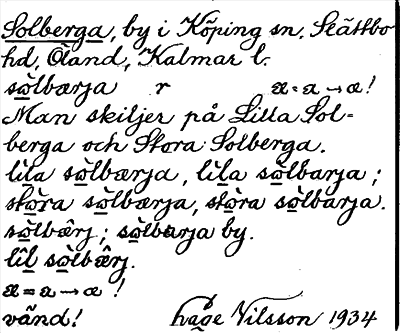 Solberga, by i Köping sn, Slättbo
hd, Öland, Kalmar l.
sò̱lbærja r a̱ = a → æ!
Man skiljer på Lilla Sol-
berga och Stora Solberga.
lìla sò̱lbærja, lìl̲a sò̱lbarja;
stòra sò̱lbærja, stòra sò̱lbarja.
sò̱lbæ̂rj; sò̱lbarja by.
lîl sò̱lbæ̂rj.
a̱ = a → æ !
vãnd! Nilsson 1934